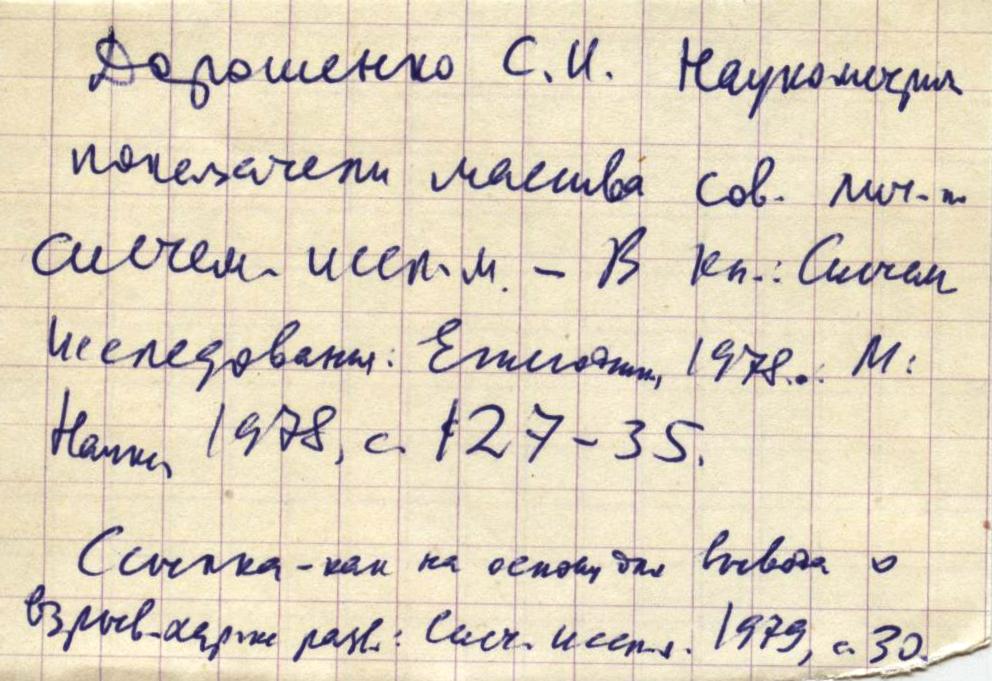 Дорошенко С.И. Наукометрич
показатели массива сов. лит-ры
систем. иссл.м. – В кн.: Систем
исследования: Ежегодник, 1978.: М:
Наука, 1978, с. 127-35.
Ссылка-как на основу для вывода о
взрыв-характ разв.: Сист. иссл. 1979, с. 30.